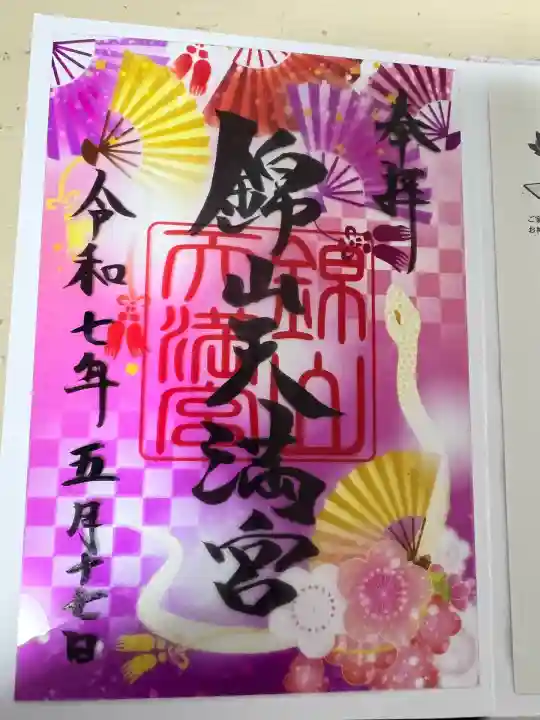 奉拝
錦山天満宮
錦山
天満宮
令和七年五月十七日